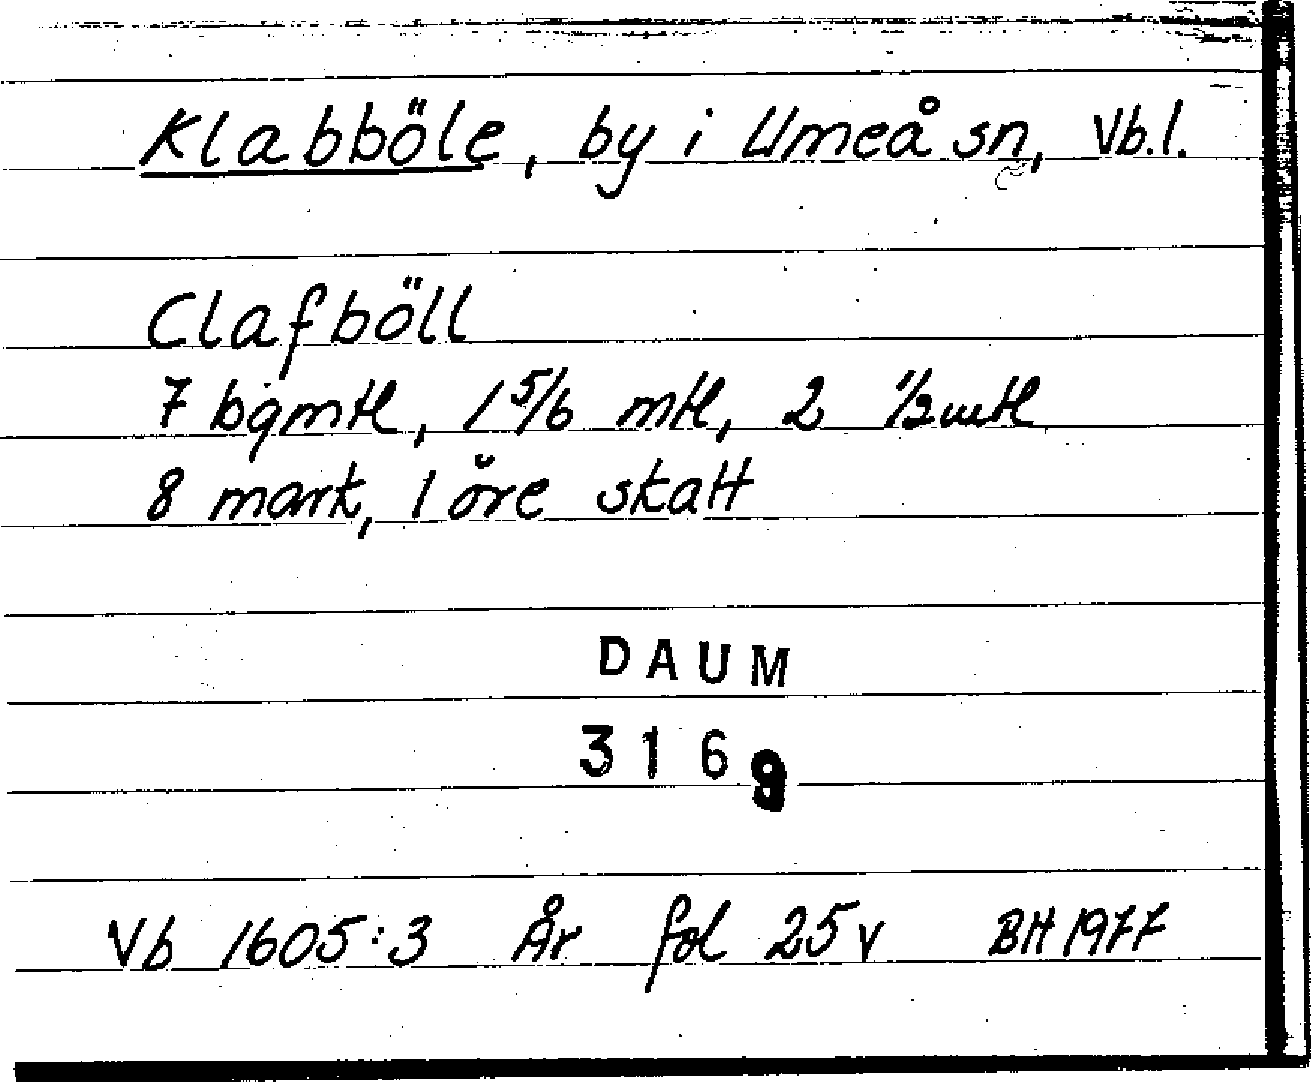 Klabböle, by i Umeå sn, Vb.l.
Clafböll
7 bgmtl, 1 5/6 mtl, 2 1/2 mtl
8 mark, 1 öre skatt
DAUM
3169
Vb 1605:3 År fol 25v BH 1977